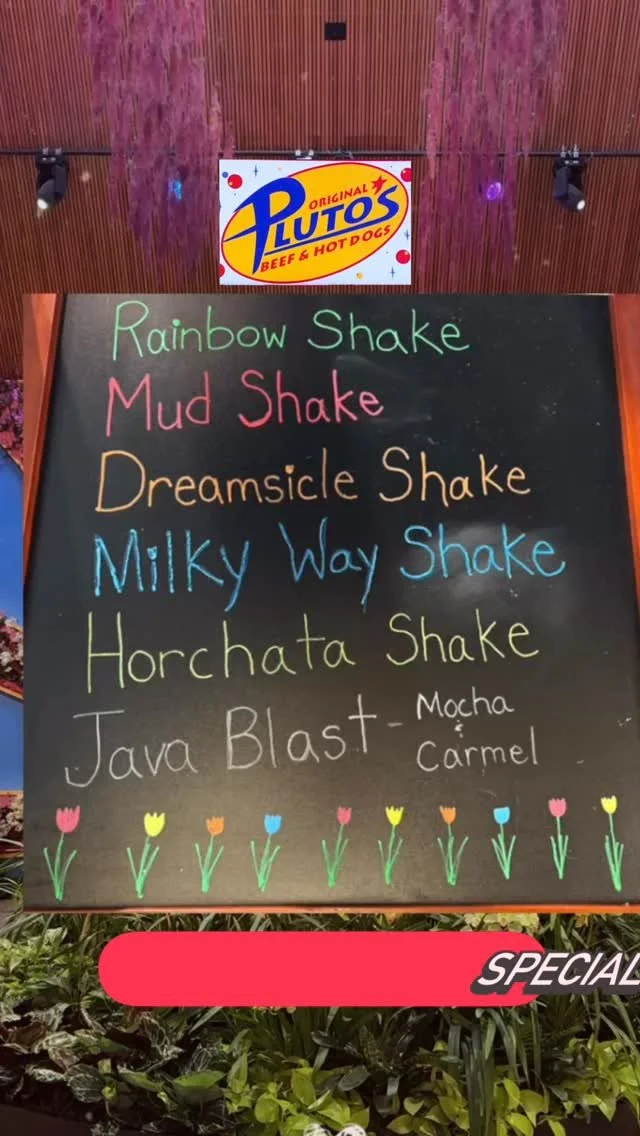 ORIGINAL
PLUTO'S
BEEF & HOT DOGS
Rainbow Shake
Mud Shake
Dreamsicle Shake
Milky Way Shake
Horchata Shake
Java Blast - Mocha
& Carmel
SPECIAL